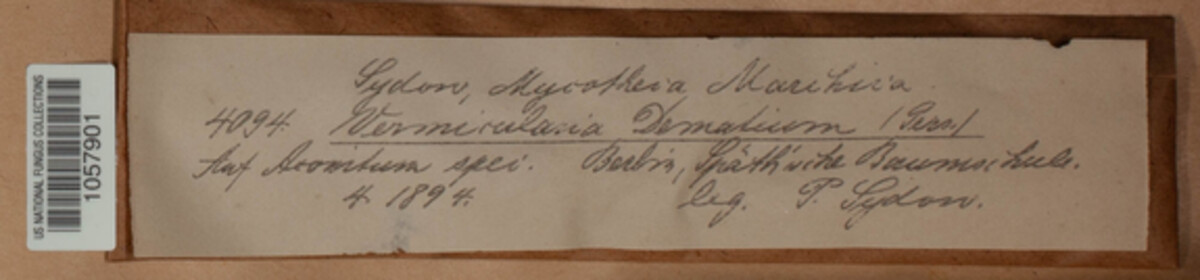 US NATIONAL FUNGUS COLLECTIONS
1057901
Sydow, Mycotheca Marchica
4094. Vermicularia Dematium (Pers.)
Auf Aconitum spec. Berlin, Späth'sche Baumschule.
4. 1894. leg. P. Sydow.